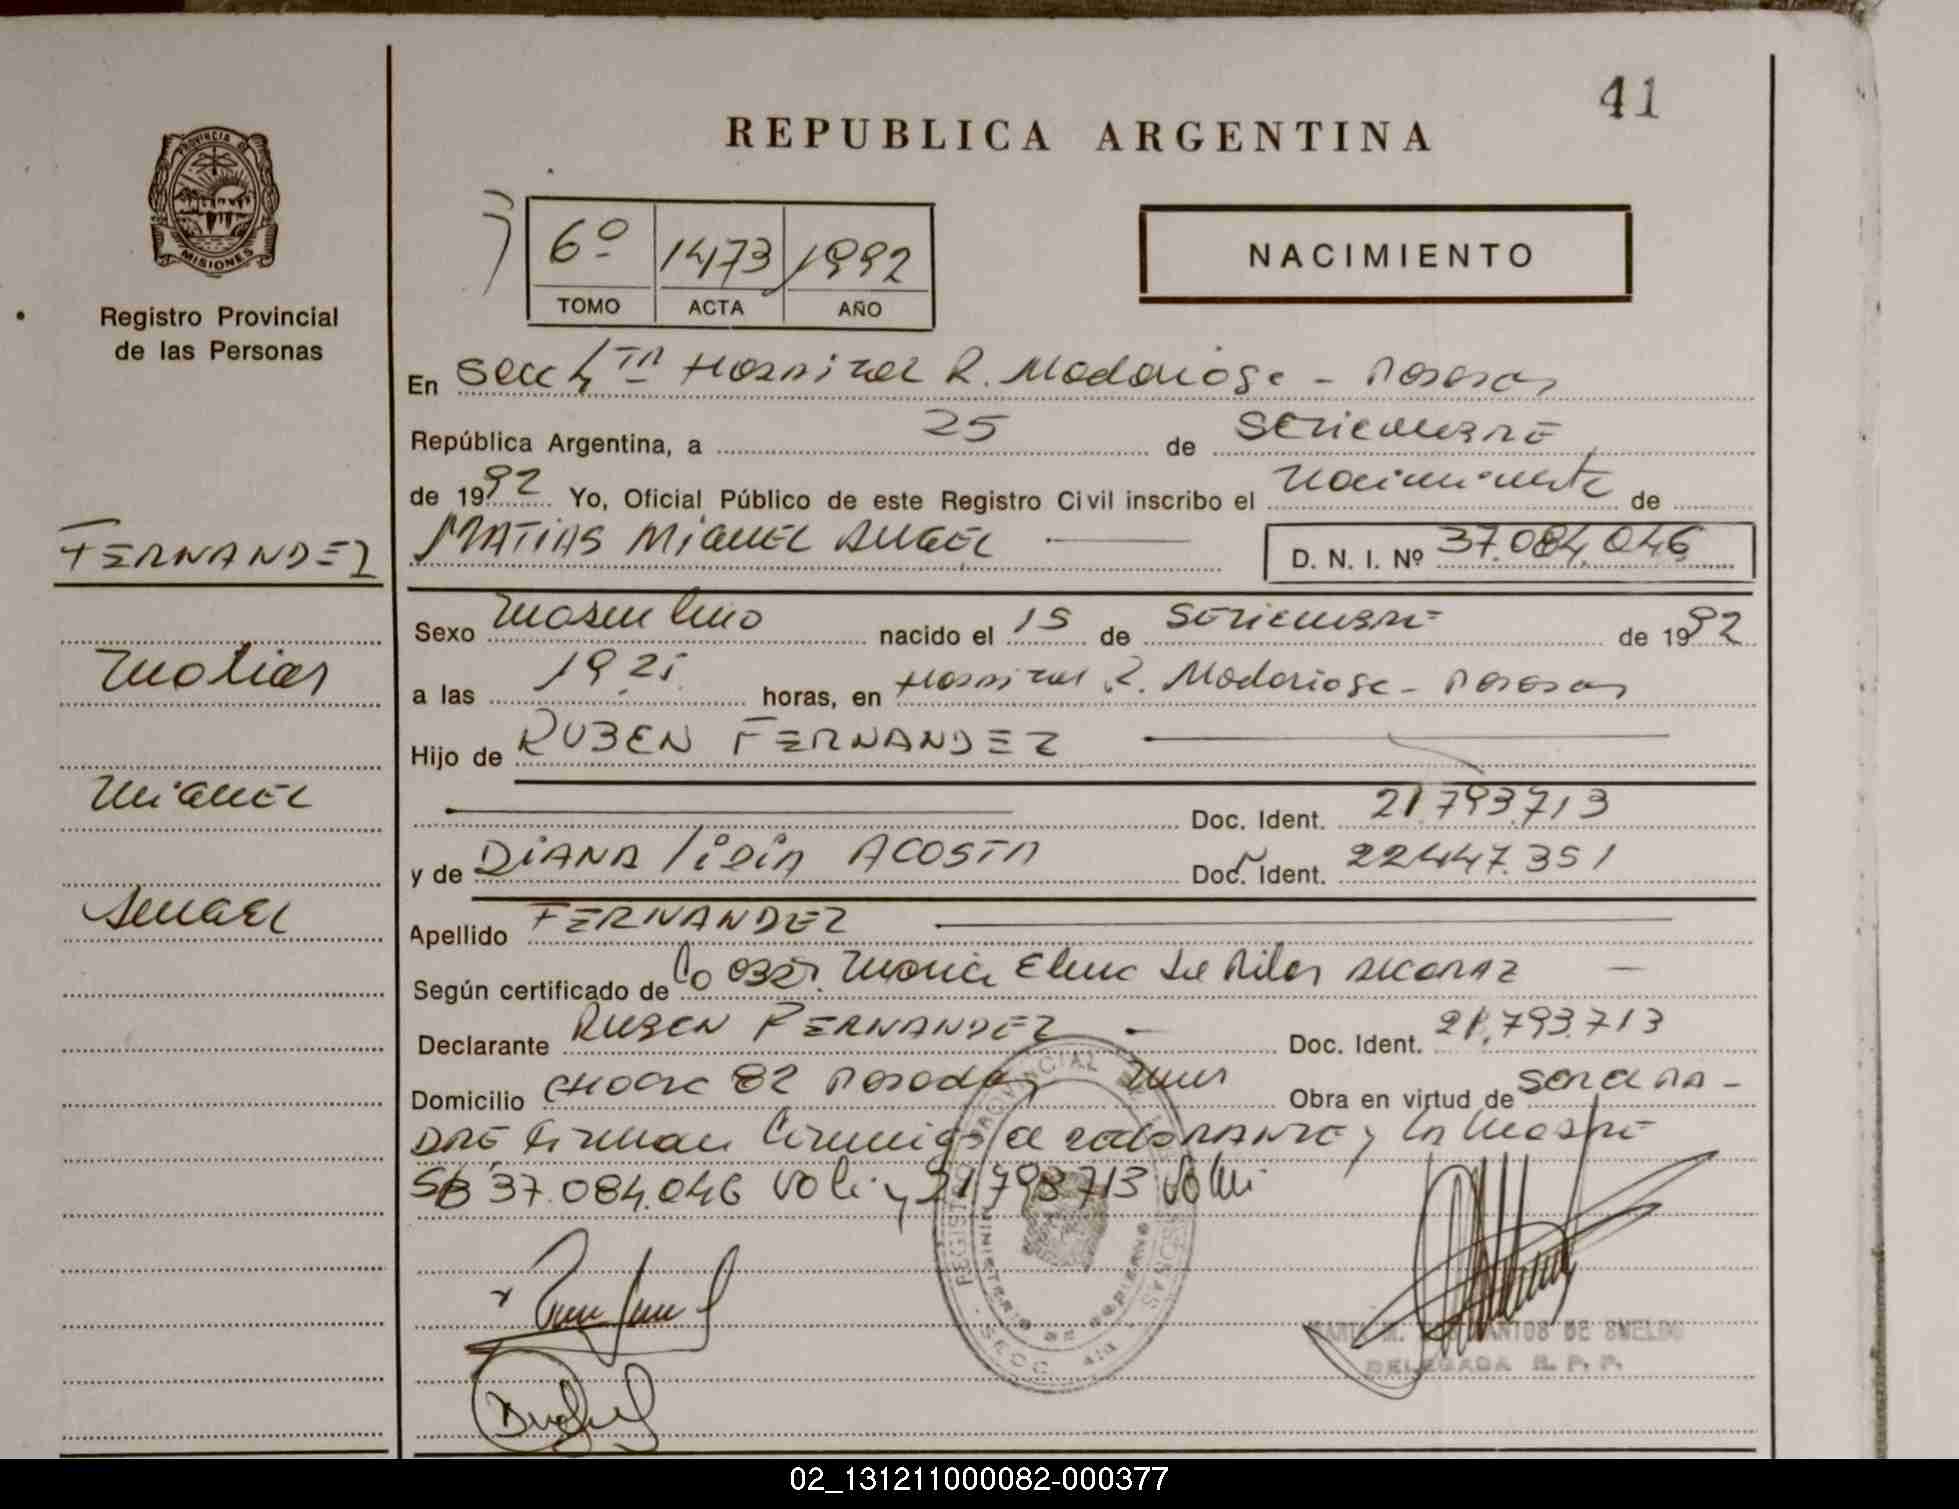 41
REPUBLICA ARGENTINA
PROVINCIA DE MISIONES
Registro Provincial
de las Personas
6º 1473 1992
TOMO ACTA AÑO
NACIMIENTO
En Secc 4ta Hospital R. Madariaga - Posadas
República Argentina, a 25 de SETIEMBRE
de 1992 Yo, Oficial Público de este Registro Civil inscribo el nacimiento de
FERNANDEZ
MATIAS MIGUEL ANGEL
D. N. I. Nº 37.084.046
Sexo Masculino nacido el 15 de SETIEMBRE de 1992
Matias
a las 19 25 horas, en Hospital R. Madariaga - Posadas
Hijo de RUBEN FERNANDEZ
MIGUEL
Doc. Ident. 21.793.713
y de DIANA LIDIA ACOSTA Doc. Ident. 22447.351
ANGEL
Apellido FERNANDEZ
Según certificado de Obst. Maria Elena del Pilar ALCARAZ
Declarante RUBEN FERNANDEZ Doc. Ident. 21.793.713
Domicilio 82 Posadas Mnes Obra en virtud de SER EL PA-
DRE Firman Conmigo el DECLARANTE y LA MADRE
SB 37.084.046 Vale y 21793713 Vale
REGISTRO PROVINCIAL DE LAS PERSONAS
MINISTERIO DE GOBIERNO
SECC. 4ta
MARIA M. SANTOS DE SMELDO
DELEGADA R. P. P.
02_131211000082-000377